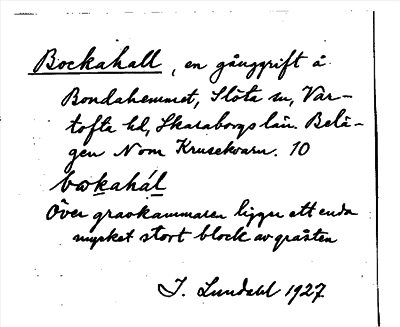 Bockahall, en gånggrift å
Bondahemmet, Slöta sn, Var-
tofta hd, Skaraborgs län. Belä-
gen N om Krusekvarn. 10
bωkahál
Över gravkammaren ligger ett enda
mycket stort block av gråsten
I. Lundahl 1927